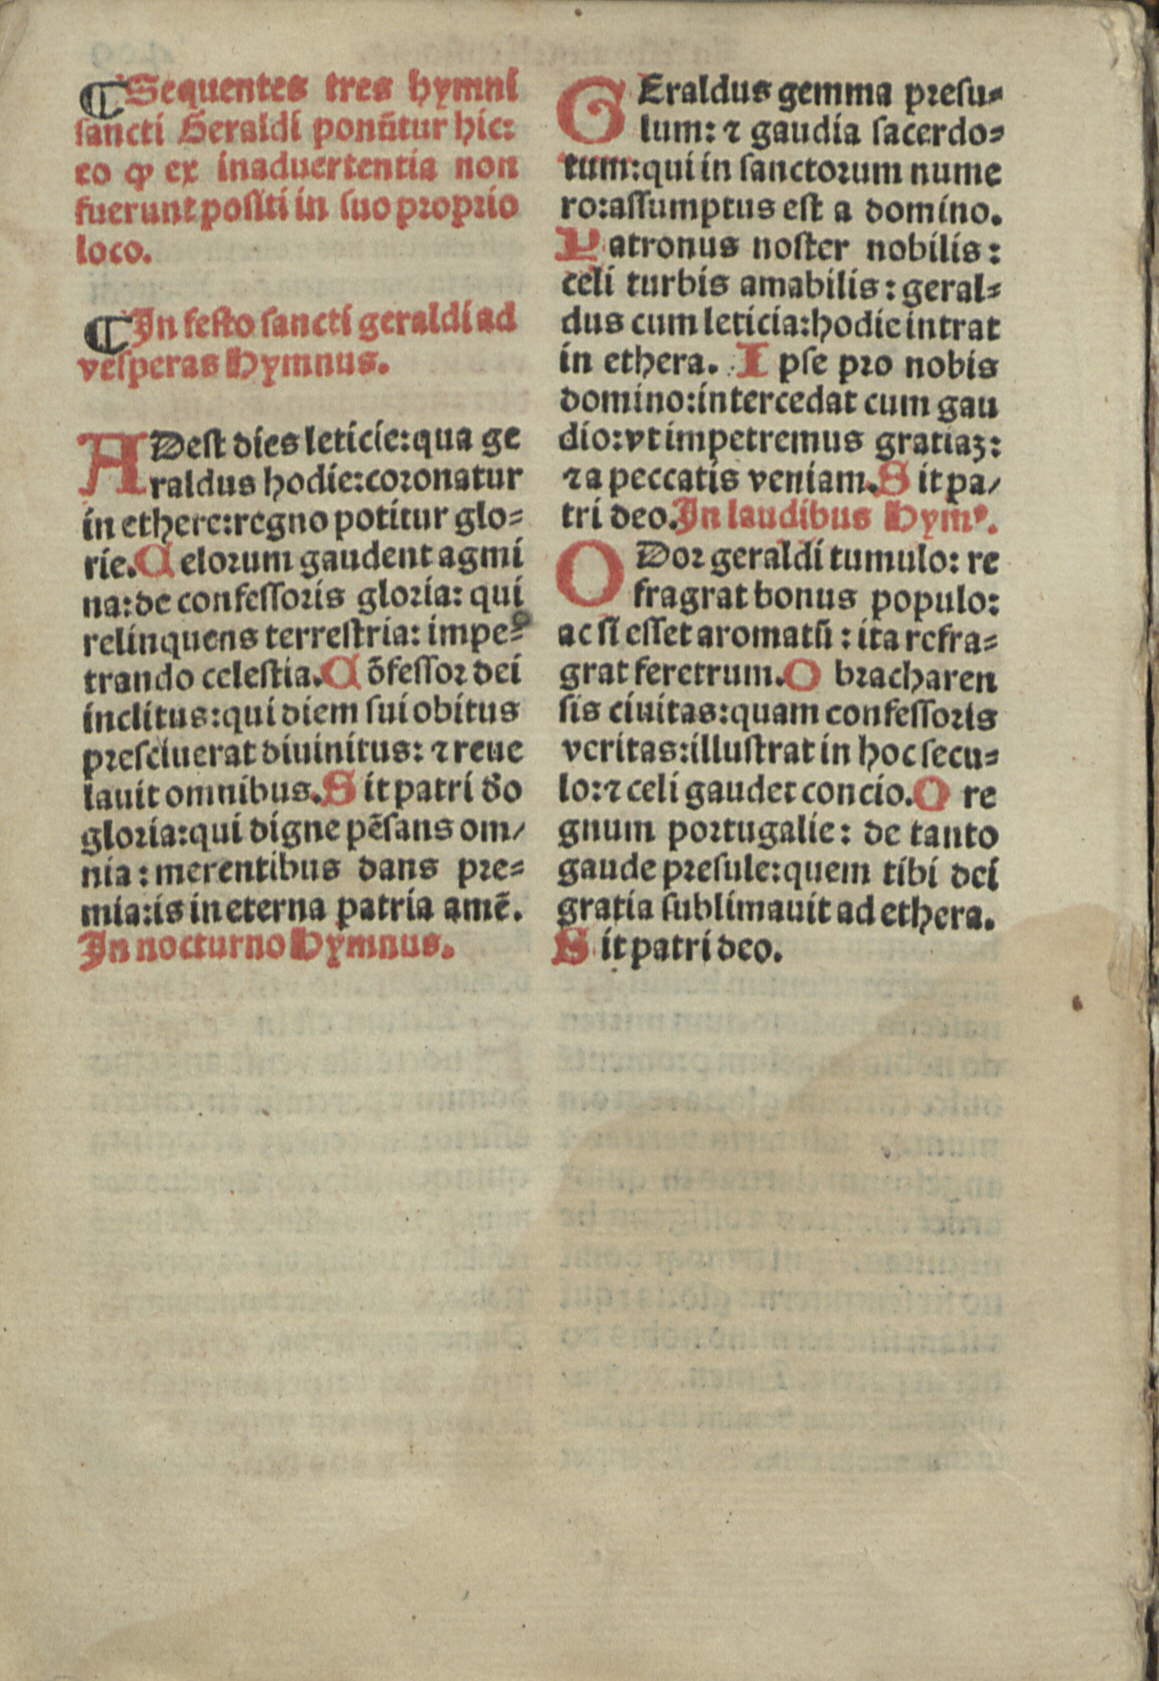 ¶Sequentes tres hymni
sancti Geraldi ponũtur hic:
eo ꝙ ex inaduertentia non
fuerunt positi in suo proprio
loco.
¶In festo sancti geraldi ad
vesperas Hymnus.
ADest dies leticie:qua ge
raldus hodie:coronatur
in ethere:regno potitur glo⸗
rie.Celorum gaudent agmi
na:de confessoris gloria: qui
relinquens terrestria: impe⸗
trando celestia.Cõfessor dei
inclitus:qui diem sui obitus
presciuerat diuinitus: ⁊ reue
lauit omnibus.Sit patri dõ
gloria:qui digne pẽsans om/
nia: merentibus dans pre⸗
mia:is in eterna patria amẽ.
In nocturno Hymnus.
GEraldus gemma presu⸗
lum: ⁊ gaudia sacerdo⸗
tum:qui in sanctorum nume
ro:assumptus est a domino.
Patronus noster nobilis:
celi turbis amabilis: geral⸗
dus cum leticia:hodie intrat
in ethera. Ipse pro nobis
domino:intercedat cum gau
dio:vt impetremus gratiaꝫ:
⁊ a peccatis veniam.Sit pa/
tri deo.In laudibus Hymꝰ.
ODor geraldi tumulo: re
fragrat bonus populo:
ac si esset aromatũ: ita refra⸗
grat feretrum.O bracharen
sis ciuitas:quam confessoris
veritas:illustrat in hoc secu⸗
lo:⁊ celi gaudet concio.O re
gnum portugalie: de tanto
gaude presule:quem tibi dei
gratia sublimauit ad ethera.
Sit patri deo.